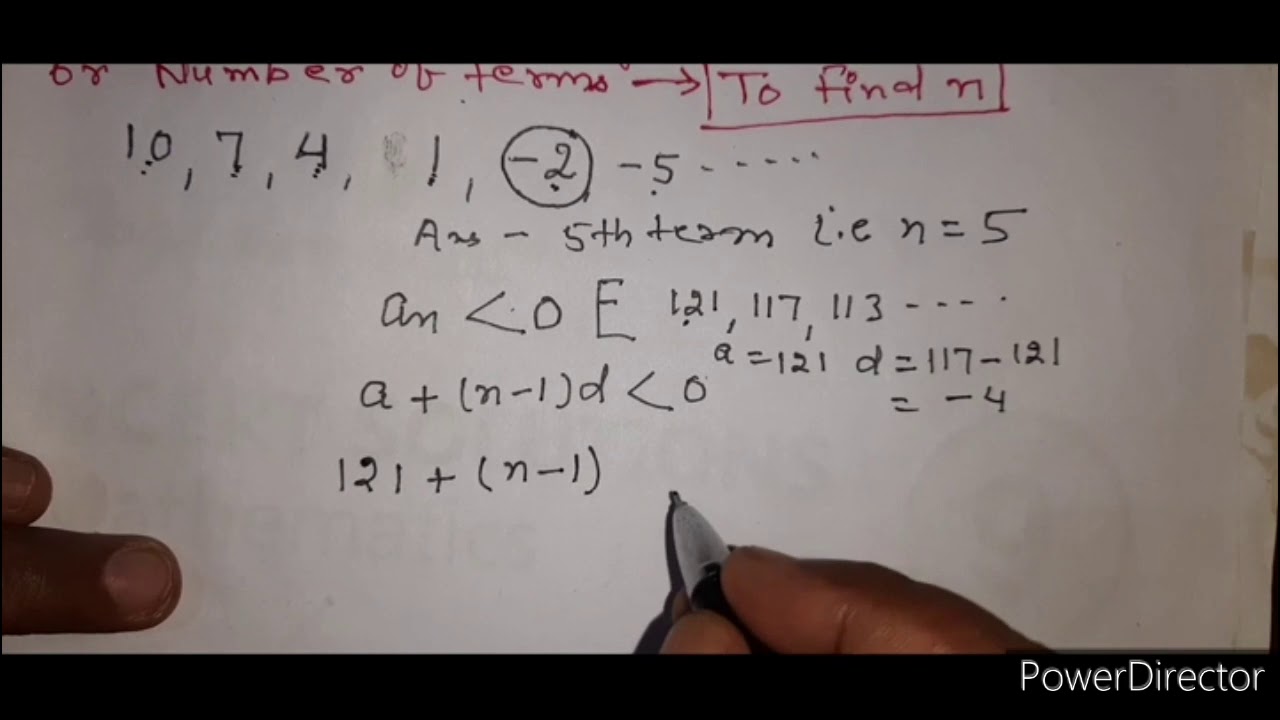 or Number of terms → To find n
10, 7, 4, 1, -2 -5 - - ....
Ans - 5th term i.e n = 5
an < 0 [ 121, 117, 113 ---- .
a = 121 d = 117 - 121
a + (n-1)d < 0 = -4
121 + (n-1)
PowerDirector